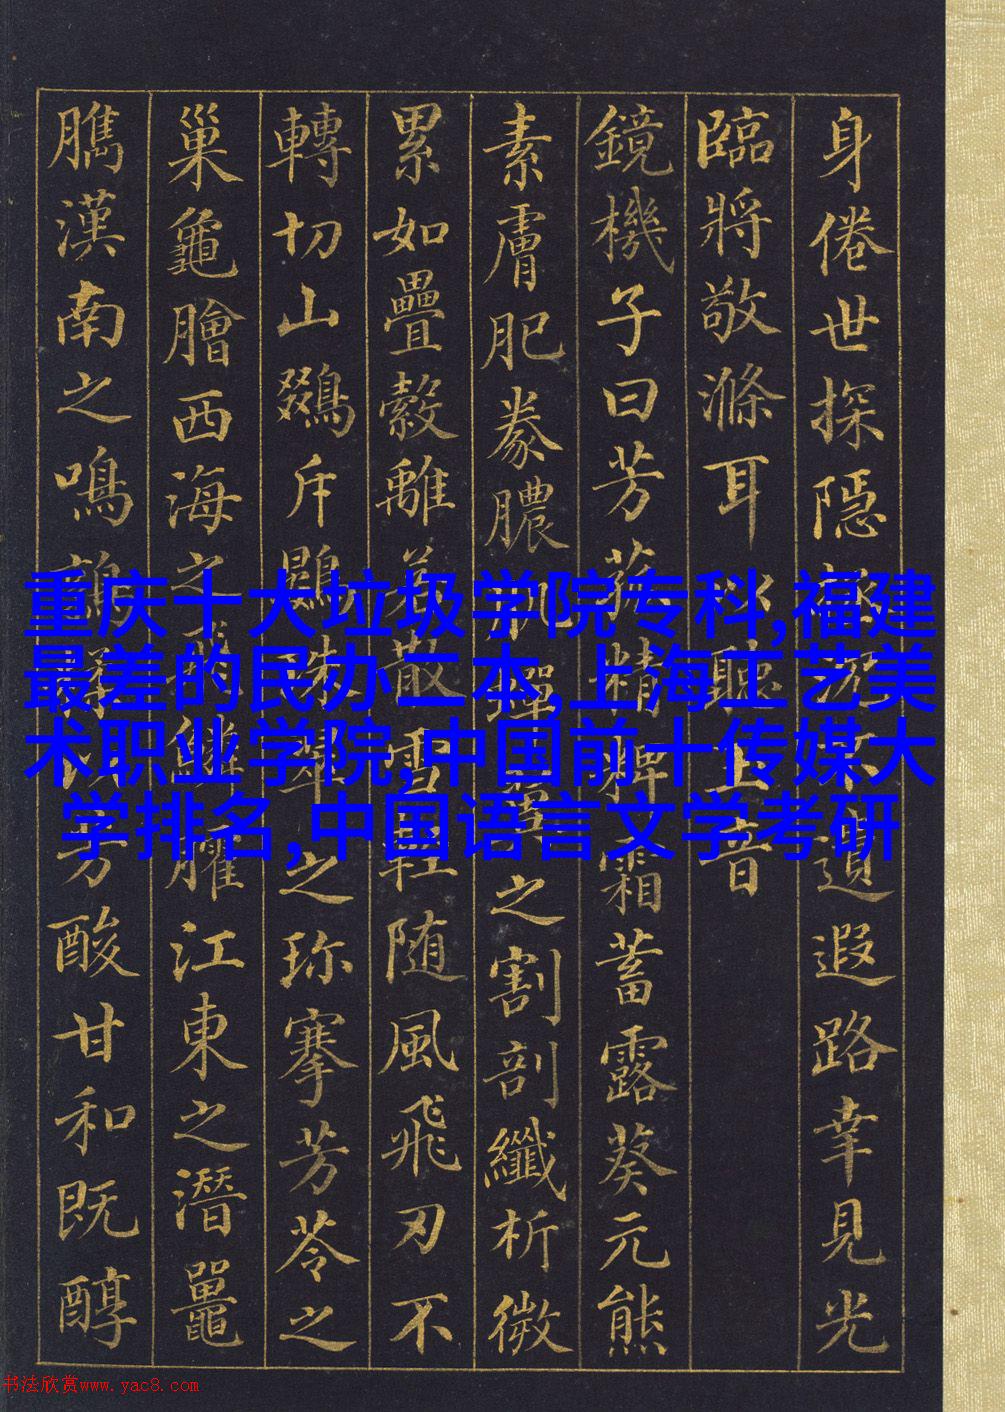 身倦世探隱不遺遐路幸見光
臨將敬滌耳以聽玉音
鏡機子曰芳菰精稗霜蓄露葵元熊
素膚肥豢膿肌蟬翼之割剖纖析微
累如疊縠離若散雪輕随風飛刃不
轉切山鵽斥鷃珠翠之珎搴芳苓之
巢龜膾西海之飛鱗臛江東之潛鼉
臇漢南之鳴鶉芳酸甘和既醇
重庆十大垃圾学院专科,福建
最差的民办二本,上海工艺美
术职业学院,中国前十传媒大
学排名,中国语言文学考研
书法欣赏www.yac8.com